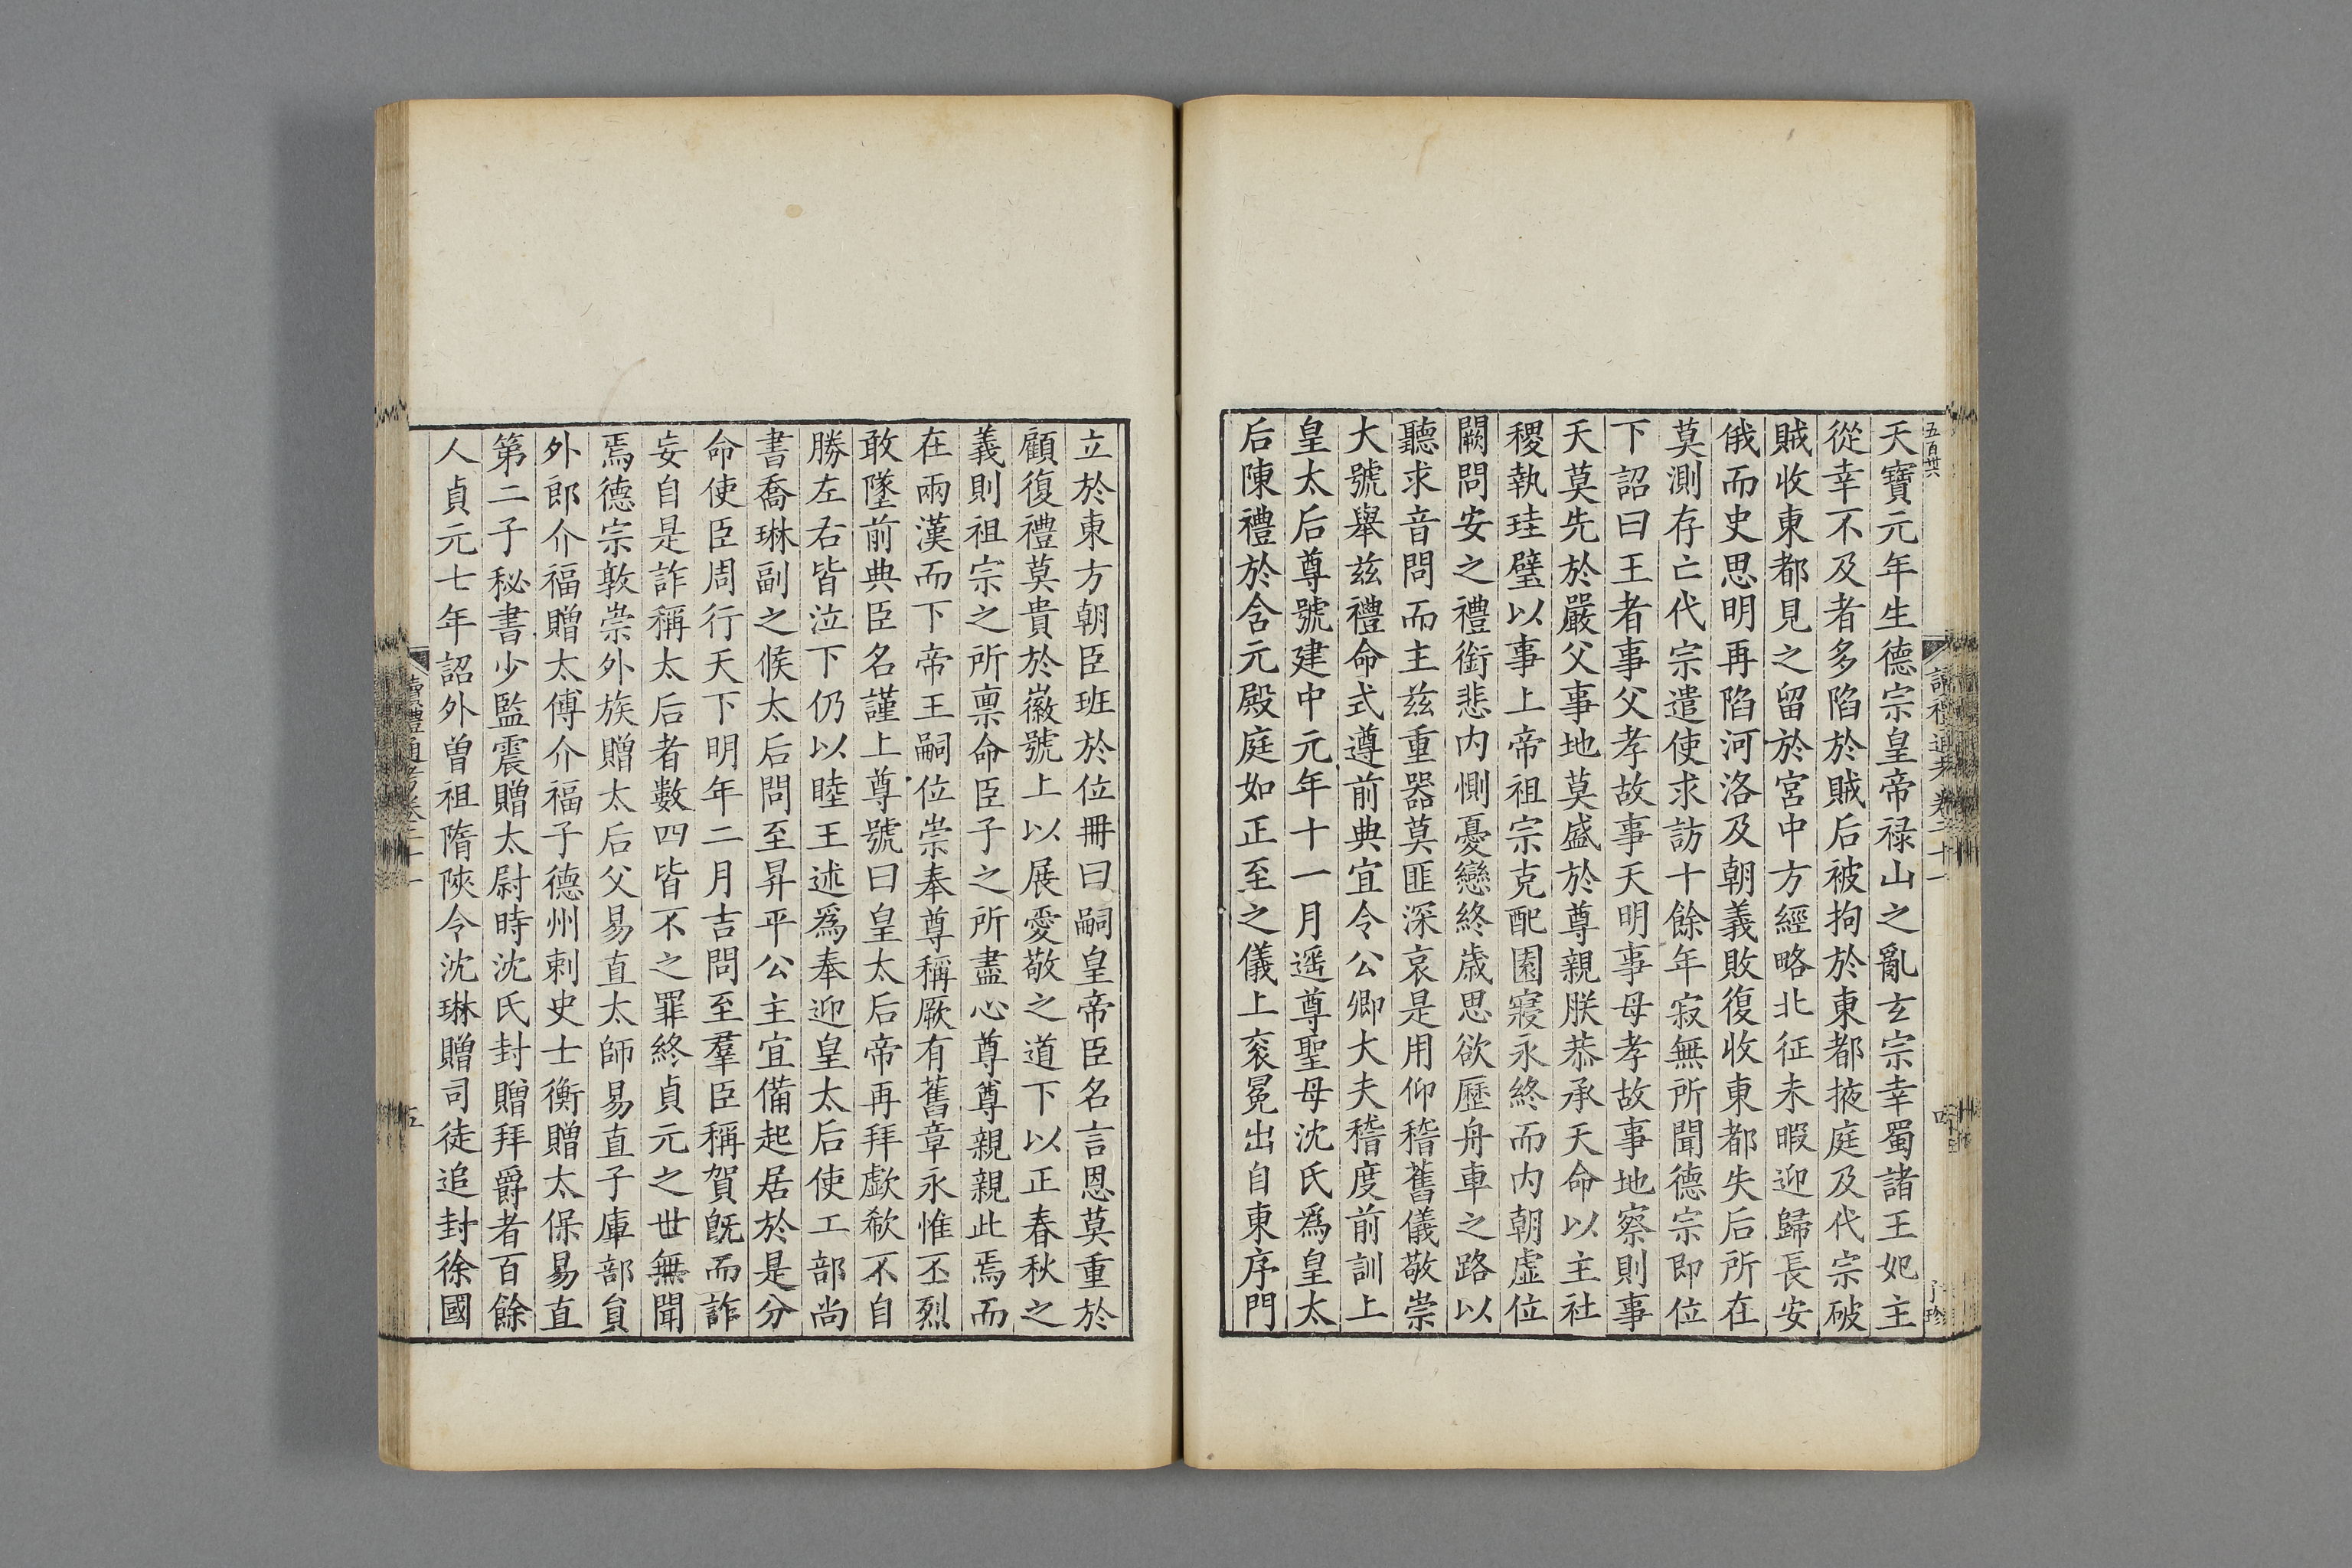 五百卅六
天寶元年生德宗皇帝禄山之亂玄宗幸蜀諸王妃主
從幸不及者多陷於賊后被拘於東都掖庭及代宗破
賊收東都見之留於宮中方經略北征未暇迎歸長安
俄而史思明再陷河洛及朝義敗復收東都失后所在
莫測存亡代宗遣使求訪十餘年寂無所聞德宗即位
下詔曰王者事父孝故事天明事母孝故事地察則事
天莫先於嚴父事地莫盛於尊親朕恭承天命以主社
稷執珪璧以事上帝祖宗克配園寢永終而内朝虛位
闕問安之禮銜悲内惻憂戀終歲思欲歷舟車之路以
聽求音問而主兹重器莫匪深哀是用仰稽舊儀敬崇
大號舉兹禮命式遵前典宜令公卿大夫稽度前訓上
皇太后尊號建中元年十一月遥尊聖母沈氏爲皇太
后陳禮於含元殿庭如正至之儀上衮冕出自東序門
立於東方朝臣班於位冊曰嗣皇帝臣名言恩莫重於
顧復禮莫貴於徽號上以展愛敬之道下以正春秋之
義則祖宗之所禀命臣子之所盡心尊尊親親此焉而
在兩漢而下帝王嗣位崇奉尊稱厥有舊章永惟丕烈
敢墜前典臣名謹上尊號曰皇太后帝再拜歔欷不自
勝左右皆泣下仍以睦王述爲奉迎皇太后使工部尚
書喬琳副之候太后問至昇平公主宜備起居於是分
命使臣周行天下明年二月吉問至羣臣稱賀旣而詐
妄自是詐稱太后者數四皆不之罪終貞元之世無聞
焉德宗敦崇外族贈太后父易直太師易直子庫部員
外郎介福贈太傅介福子德州刺史士衡贈太保易直
第二子秘書少監震贈太尉時沈氏封贈拜爵者百餘
人貞元七年詔外曾祖隋陝令沈琳贈司徒追封徐國
讀禮通考卷二十一
五